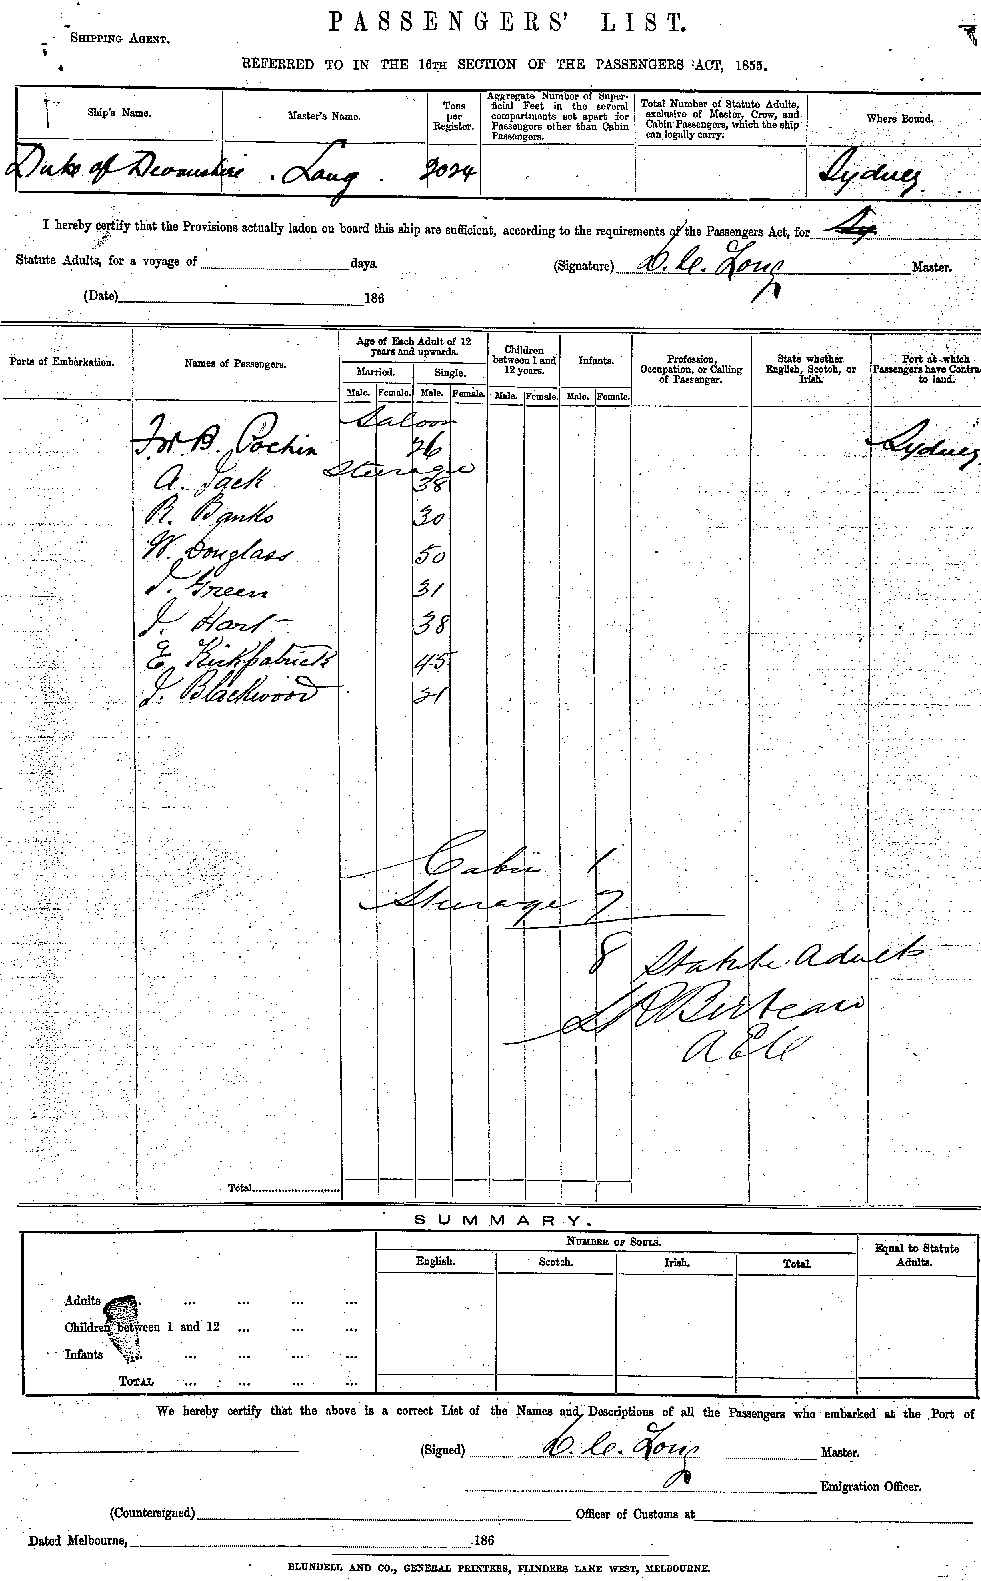 PASSENGERS' LIST.
SHIPPING AGENT.
REFERRED TO IN THE 16TH SECTION OF THE PASSENGERS ACT, 1855.
Ship's Name. Master's Name. Tons per Register. Aggregate Number of Superficial Feet in the several compartments set apart for Passengers other than Cabin Passengers. Total Number of Statute Adults, exclusive of Master, Crew, and Cabin Passengers, which the ship can legally carry. Where Bound.
Duke of Devonshire Long 2024 Sydney
I hereby certify that the Provisions actually laden on board this ship are sufficient, according to the requirements of the Passengers Act, for Sy
Statute Adults, for a voyage of days. (Signature) Long Master.
(Date) 186
Ports of Embarkation. Names of Passengers. Age of Each Adult of 12 years and upwards. Children between 1 and 12 years. Infants. Profession, Occupation, or Calling of Passenger. State whether English, Scotch, or Irish. Port at which Passengers have Contra to land.
Married. Single.
Male. Female. Male. Female. Male. Female. Male. Female.
Saloon
F. W. B. Cochin 26 Sydney
Steerage
A. Jack 38
R. Banks 30
W. Douglass 50
J. Green 31
J. Hart 38
E. Kirkpatrick 45
J. Blackwood 21
Cabin 1
Steerage 7
8 Statute Adults
Total
SUMMARY.
NUMBER OF SOULS. Equal to Statute Adults.
English. Scotch. Irish. Total.
Adults ... ... ... ...
Children between 1 and 12 ... ... ...
Infants ... ... ... ...
TOTAL ... ... ... ...
We hereby certify that the above is a correct List of the Names and Descriptions of all the Passengers who embarked at the Port of
(Signed) Long Master.
Emigration Officer.
(Countersigned) Officer of Customs at
Dated Melbourne, 186
BLUNDELL AND CO., GENERAL PRINTERS, FLINDERS LANE WEST, MELBOURNE.